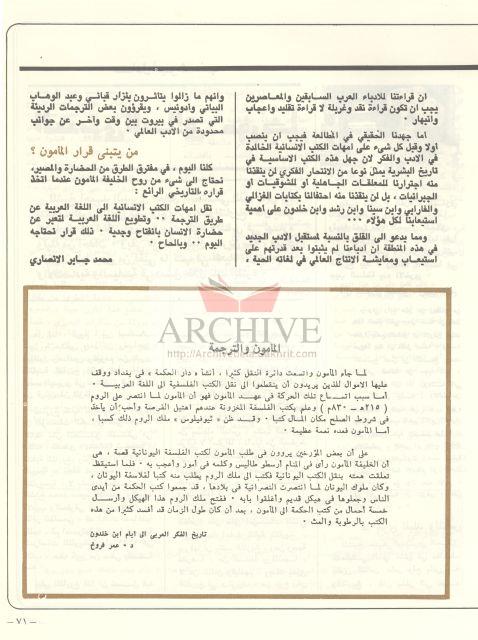 ان قراءتنا للادباء العرب السابقين والمعاصرين
يجب ان تكون قراءة نقد وغربلة لا قراءة تقليد واعجاب
وانبهار ٠
اما جهدنا الحقيقي في المطالعة فيجب ان ينصب
اولا وقبل كل شيء على امهات الكتب الانسانية الخالدة
في الادب والفكر لان جهل هذه الكتب الاساسية في
تاريخ البشرية يمثل نوعا من الانتحار الفكري لن ينقذنا
منه اجترارنا للمعلقات الجاهلية او للشوقيات او
الجبرانيات ، بل لن ينقذنا منه احتفالنا بكتابات الغزالي
والفارابي وابن سينا وابن رشد وابن خلدون على اهمية
استيعابنا لكل هؤلاء ٠٠٠
ومما يدعو الى القلق بالنسبة لمستقبل الادب الجديد
في هذه المنطقة ان ادباءنا لم يثبتوا بعد قدرتهم على
استيعاب ومعايشة الانتاج العالمي في لغاته الحية ،
وانهم ما زالوا يتأثرون بنزار قباني وعبد الوهاب
البياتي وادونيس ، ويقرؤون بعض الترجمات الرديئة
التي تصدر في بيروت بين وقت وآخر عن جوانب
محدودة من الادب العالمي ٠
من يتبنى قرار المأمون ؟
كلنا اليوم ، في مفترق الطرق من الحضارة والمصير،
نحتاج الى شيء من روح الخليفة المأمون عندما اتخذ
قراره التاريخي الرائع :
نقل امهات الكتب الانسانية الى اللغة العربية عن
طريق الترجمة ٠٠ وتطويع اللغة العربية لتعبر عن
حضارة الانسان بانفتاح وجدية ٠ ذلك قرار نحتاجه
اليوم ٠٠ وبالحاح ٠
محمد جابر الانصاري
ARCHIVE
المأمون والترجمة
http://Archivebeta.Sakhrit.com
لما جاء المأمون واتسعت دائرة النقل كثيرا ، أنشأ « دار الحكمة » في بغداد ووقف
عليها الاموال للذين يريدون أن ينقطعوا الى نقل الكتب الفلسفية الى اللغة العربيـة ٠
أما سبب اتسـاع تلك الحركة في عهـد المأمون فهو أن المأمون لما انتصر على الروم
( ٢١٥هـ – ٨٣٠م ) وعلم بكتب الفلسفة المخزونة عندهم اهتبل الفرصة وأحب أن يأخذ
في شروط الصلح مكان المال كتبا ٠ وقـد ظن « ثيوفيلوس » ملك الروم ذلك كسبا ،
أما المأمون فعده نعمة عظيمة ٠
على أن بعض المؤرخين يروون في طلب المأمون لكتب الفلسفة اليونانية قصة ، هي
أن الخليفة المأمون رأى في المنام أرسطو طاليس وكلمه في أمور وأعجب به ٠ فلما استيقظ
تعلقت همته بنقل الكتب اليونانية فكتب الى ملك الروم يطلب منه كتبا لفلاسفة اليونان ،
وكان ملوك اليونان لما انتصرت النصرانية في بلادها ، قد جمعوا كتب الحكمة من أيدي
الناس وجعلوها في هيكل قديم وأغلقوا بابه ٠ ففتح ملك الروم هذا الهيكل وأرسـل
خمسة أحمال من كتب الحكمة الى المأمون ، بعد أن كان طول الزمان قد أفسد كثيرا من هذه
الكتب بالرطوبة والعث ٠
تاريخ الفكر العربي الى أيام ابن خلدون
د ٠ عمر فروخ
– ٧١ –